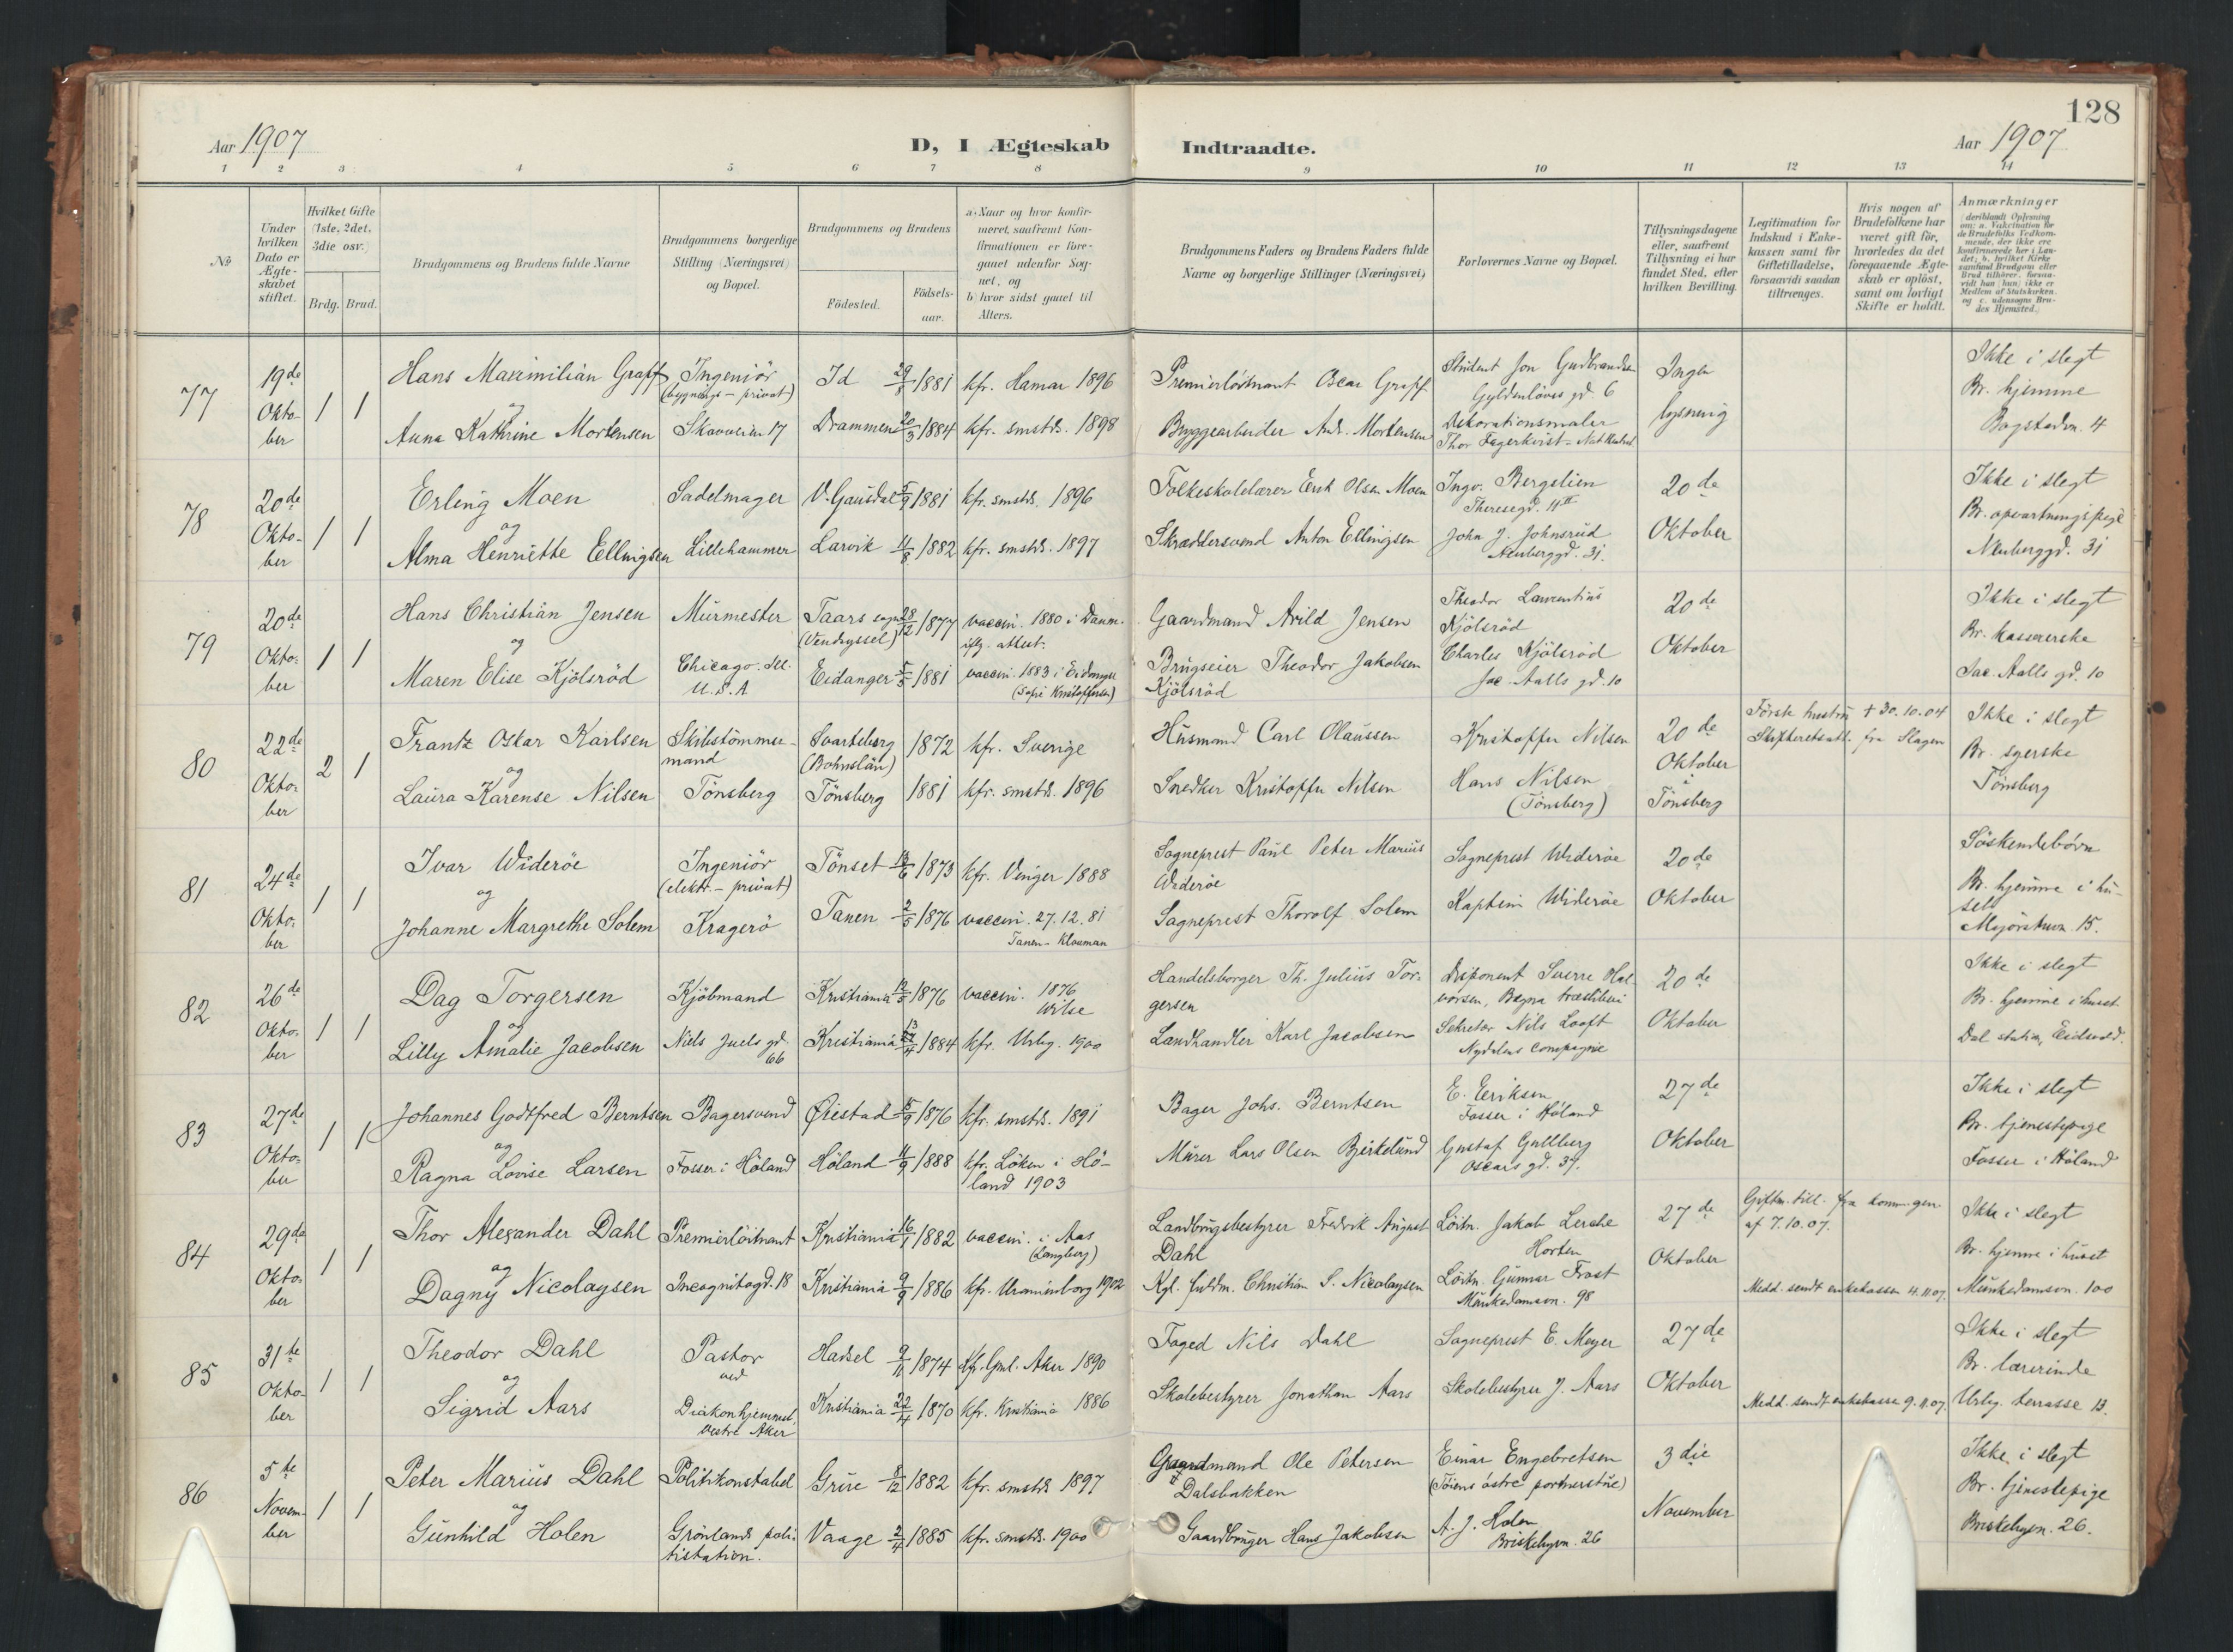 128
Aar 1907
D, I Ægteskab Indtraadte.
Aar 1907
1 2 3 4 5 6 7 8 9 10 11 12 13 14
№
Under hvilken Dato er Ægte-skabet stiftet.
Hvilket Gifte (1ste, 2det, 3die osv.)
Brdg. Brud.
Brudgommens og Brudens fulde Navne
Brudgommens borgerlige Stilling (Næringsvei) og Bopæl.
Brudgommens og Brudens
Födested.
Födsels-aar.
a) Naar og hvor konfir-meret, saafremt Kon-firmationen er fore-gaaet udenfor Sog-net, og
b) hvor sidst gaaet til Alters.
Brudgommens Faders og Brudens Faders fulde Navne og borgerlige Stillinger (Næringsvei)
Forlovernes Navne og Bopæl.
Tillysningsdagene eller, saafremt Tillysning ei har fundet Sted, efter hvilken Bevilling.
Legitimation for Indskud i Enke-kassen samt for Giftetilladelse, forsaavidt saadan tiltrænges.
Hvis nogen af Brudefolkene har været gift før, hvorledes da det foregaaende Ægte-skab er oplöst, samt om lovligt Skifte er holdt.
Anmærkninger
77
19de Okto-ber
1 1
Hans Maximilian Graff
og
Anna Kathrine Mortensen
Ingeniör
(bygnings - privat)
Skovveien 17
Id 29/8 1881
Drammen 20/3 1884
kfr. Hamar 1896
kfr. smstds. 1898
Premierlöitnant Oscar Graff
Bryggearbeider Andr. Mortensen
Student Jon Gudbrandsen
Gyldenlöves gd. 6
Dekorationsmaler
Thor Fagerkvist
Ingen
lysning
Ikke i slegt
Br. hjemme
Bogstadvn. 4
78
20de Okto-ber
1 1
Erling Moen
og
Alma Henriette Ellingsen
Sadelmager
Lillehammer
V. Gausdal 5/9 1881
Larvik 11/8 1882
kfr. smstds. 1896
kfr. smstds. 1897
Folkeskolelærer Erik Olsen Moen
Skræddersvend Anton Ellingsen
Ingv. Bergslien
Theresegd. 11
John J. Johnsrud
Neuberggd. 31.
20de
Oktober
Ikke i slegt
Br. opvartningspige
Neuberggd. 31
79
20de Okto-ber
1 1
Hans Christian Jensen
og
Maren Elise Kjölsröd
Murmester
Chicago. Ill.
U.S.A
Taars sogn
(Vendsyssel) 28/12 1877
Eidanger 5/5 1881
vaccin. 1880 i Danm.
iflg. attest.
vaccin. 1883 i Eidanger
(Sofie Kristoffersen)
Gaardmand Arild Jensen
Brugseier Theodor Jakobsen
Kjölsröd
Theodor Laurentius
Kjölsröd
Charles Kjölsröd
Jac. Aalls gd. 10
20de
Oktober
Ikke i slegt
Br. kassererske
Jac. Aalls gd. 10
80
22de Okto-ber
2 1
Frantz Oskar Karlsen
og
Laura Karense Nilsen
Skibstömmer-
mand
Tönsberg
Svarteborg
(Bohuslän) 1872
Tönsberg 1881
kfr. Sverige
kfr. smstds. 1896
Husmand Carl Olaussen
Snedker Kristoffer Nilsen
Kristoffer Nilsen
Hans Nilsen
(Tönsberg)
20de
Oktober
i
Tönsberg
Förste hustru † 30.10.04
Skifteretsatt. fra Slagen
Ikke i slegt
Br. syerske
Tönsberg
81
24de Okto-ber
1 1
Ivar Wideröe
og
Johanne Margrethe Solem
Ingeniör
(elektr. - privat)
Kragerö
Tönset 13/6 1873
Tanen 2/5 1876
kfr. Vinger 1888
vaccin. 27.12.81
Tanen - Klouman
Sogneprest Paul Peter Marius
Wideröe
Sogneprest Thorolf Solem
Sogneprest Wideröe
Kaptein Wideröe
20de
Oktober
Söskendebörn
Br. hjemme i hu-
set
Majorstuvn. 15.
82
26de Okto-ber
1 1
Dag Torgersen
og
Lilly Amalie Jacobsen
Kjöbmand
Niels Juels gd.
66
Kristiania 12/5 1876
Kristiania 1884
vaccin. 1876
Wilse
kfr. Urbg. 1900
Handelsborger Th. Julius Tor-
gersen
Landhandler Karl Jacobsen
Disponent Sverre Hal-
vorsen, Bægna træsliberi
Sekretær Nils Looft
Nydalens Compagnie
20de
Oktober
Ikke i slegt
Br. hjemme i huset
Dal station, Eidsvold.
83
27de Okto-ber
1 1
Johannes Godtfred Berntsen
og
Ragna Lovise Larsen
Bagersvend
Fosser i Höland
Øiestad 5/9 1876
Höland 11/9 1888
kfr. smstds. 1891
kfr. Löken i Hö-
land 1903
Bager Johs. Berntsen
Murer Lars Olsen Bjerkelund
E. Eriksen
Fosser i Höland
Gustaf Gullberg
Oscars gd. 37.
27de
Oktober
Ikke i slegt
Br. tjenestepige
Fosser i Höland
84
29de Okto-ber
1 1
Thor Alexander Dahl
og
Dagny Nicolaysen
Premierlöitnant
Incognitogd. 18
Kristiania 16/1 1882
Kristiania 9/9 1886
vaccin. i Aas
(Langberg)
kfr. Uranienborg 1902
Landbrugsbestyrer Fredrik August
Dahl
Kgl. fuldm. Christian S. Nicolaysen
Löitn. Jakob Lerche
Horten
Löitn. Gunnar Frost
Munkedamsvn. 98
27de
Oktober
Giftm. till. fra komm. gen.
af 7.10.07.
Medd. sendt enkekassen 4.11.07.
Ikke i slegt
Br. hjemme i huset
Munkedamsvn. 100
85
31te Okto-ber
1 1
Theodor Dahl
og
Sigrid Aars
Pastor
ved
Diakonhjemmet,
vestre Aker
Hadsel 9/11 1874
Kristiania 22/4 1870
kfr. Gml. Aker 1890
kfr. Kristiania 1886
Foged Nils Dahl
Skolebestyrer Jonathan Aars
Sogneprest E. Meyer
Skolebestyrer J. Aars
27de
Oktober
Medd. sendt enkekasse 9.11.07.
Ikke i slegt
Br. lærerinde
Urbg. terrasse 13.
86
5te Novem-ber
1 1
Peter Marius Dahl
og
Gunhild Holen
Politikonstabel
Grönlands poli-
tistation.
Grue 8/12 1882
Vaage 2/4 1885
kfr. smstds 1897
kfr. smstds. 1900
Gaardmand Ole Petersen
Dalsbakken
Gaardbruger Hans Jakobsen
Einar Engebretsen
(Töiens östre portnerstue)
A. J. Holen
Briskebyvn. 26
3die
November
Ikke i slegt
Br. tjenestepige
Briskebyvn. 26.